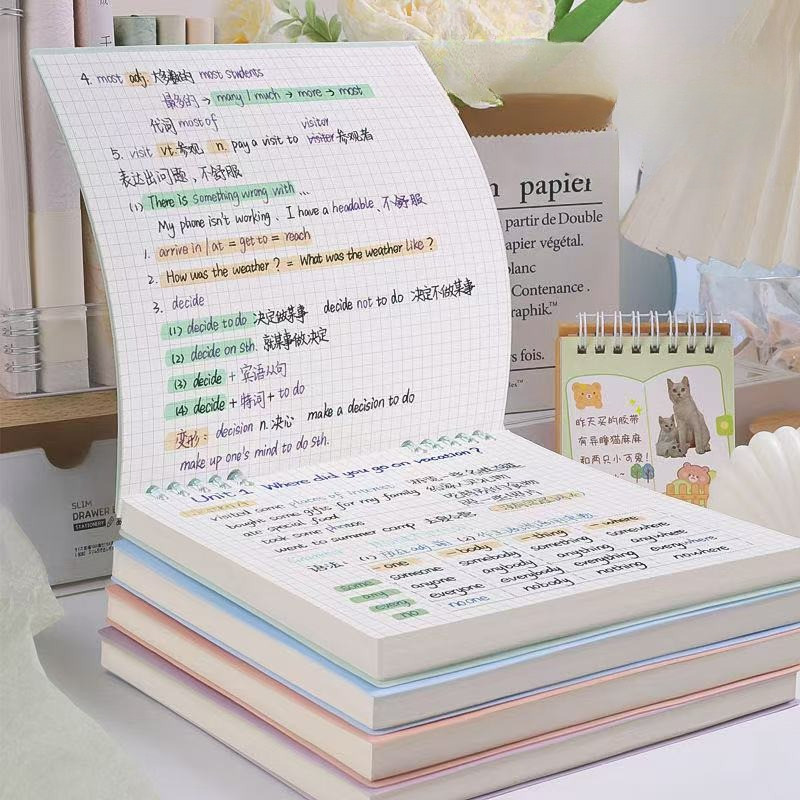 4. most adj. 大多数的 most students
最多的 → many / much → more → most
代词 most of
visitor
5. visit vt. 参观 n. pay a visit to visiter 参观者
表达出问题、不舒服
(1) There is something wrong with ...
My phone isn't working. I have a headable、不舒服
1. arrive in / at = get to = reach
2. How was the weather? = What was the weather like?
3. decide
(1) decide to do 决定做某事 decide not to do 决定不做某事
(2) decide on sth. 就某事做决定
(3) decide + 宾语从句
(4) decide + 特词 + to do
变形: decision n. 决心 make a decision to do
make up one's mind to do sth.
Unit 1 Where did you go on vacation?
visited some places of interest
bought some gifts for my family
ate special food
took some photos
went to summer camp
语法: (1)
-one -body -thing -where
some someone somebody something somewhere
any anyone anybody anything anywhere
every everyone everybody everything everywhere
no no one nobody nothing nowhere
papier
partir de Double
apier végétal.
blanc
Contenance .
raphik.™
rs fois.
昨天买的胶带
有异瞳猫麻麻
和两只小可爱!
SLIM
DRAWER
STATIONERY